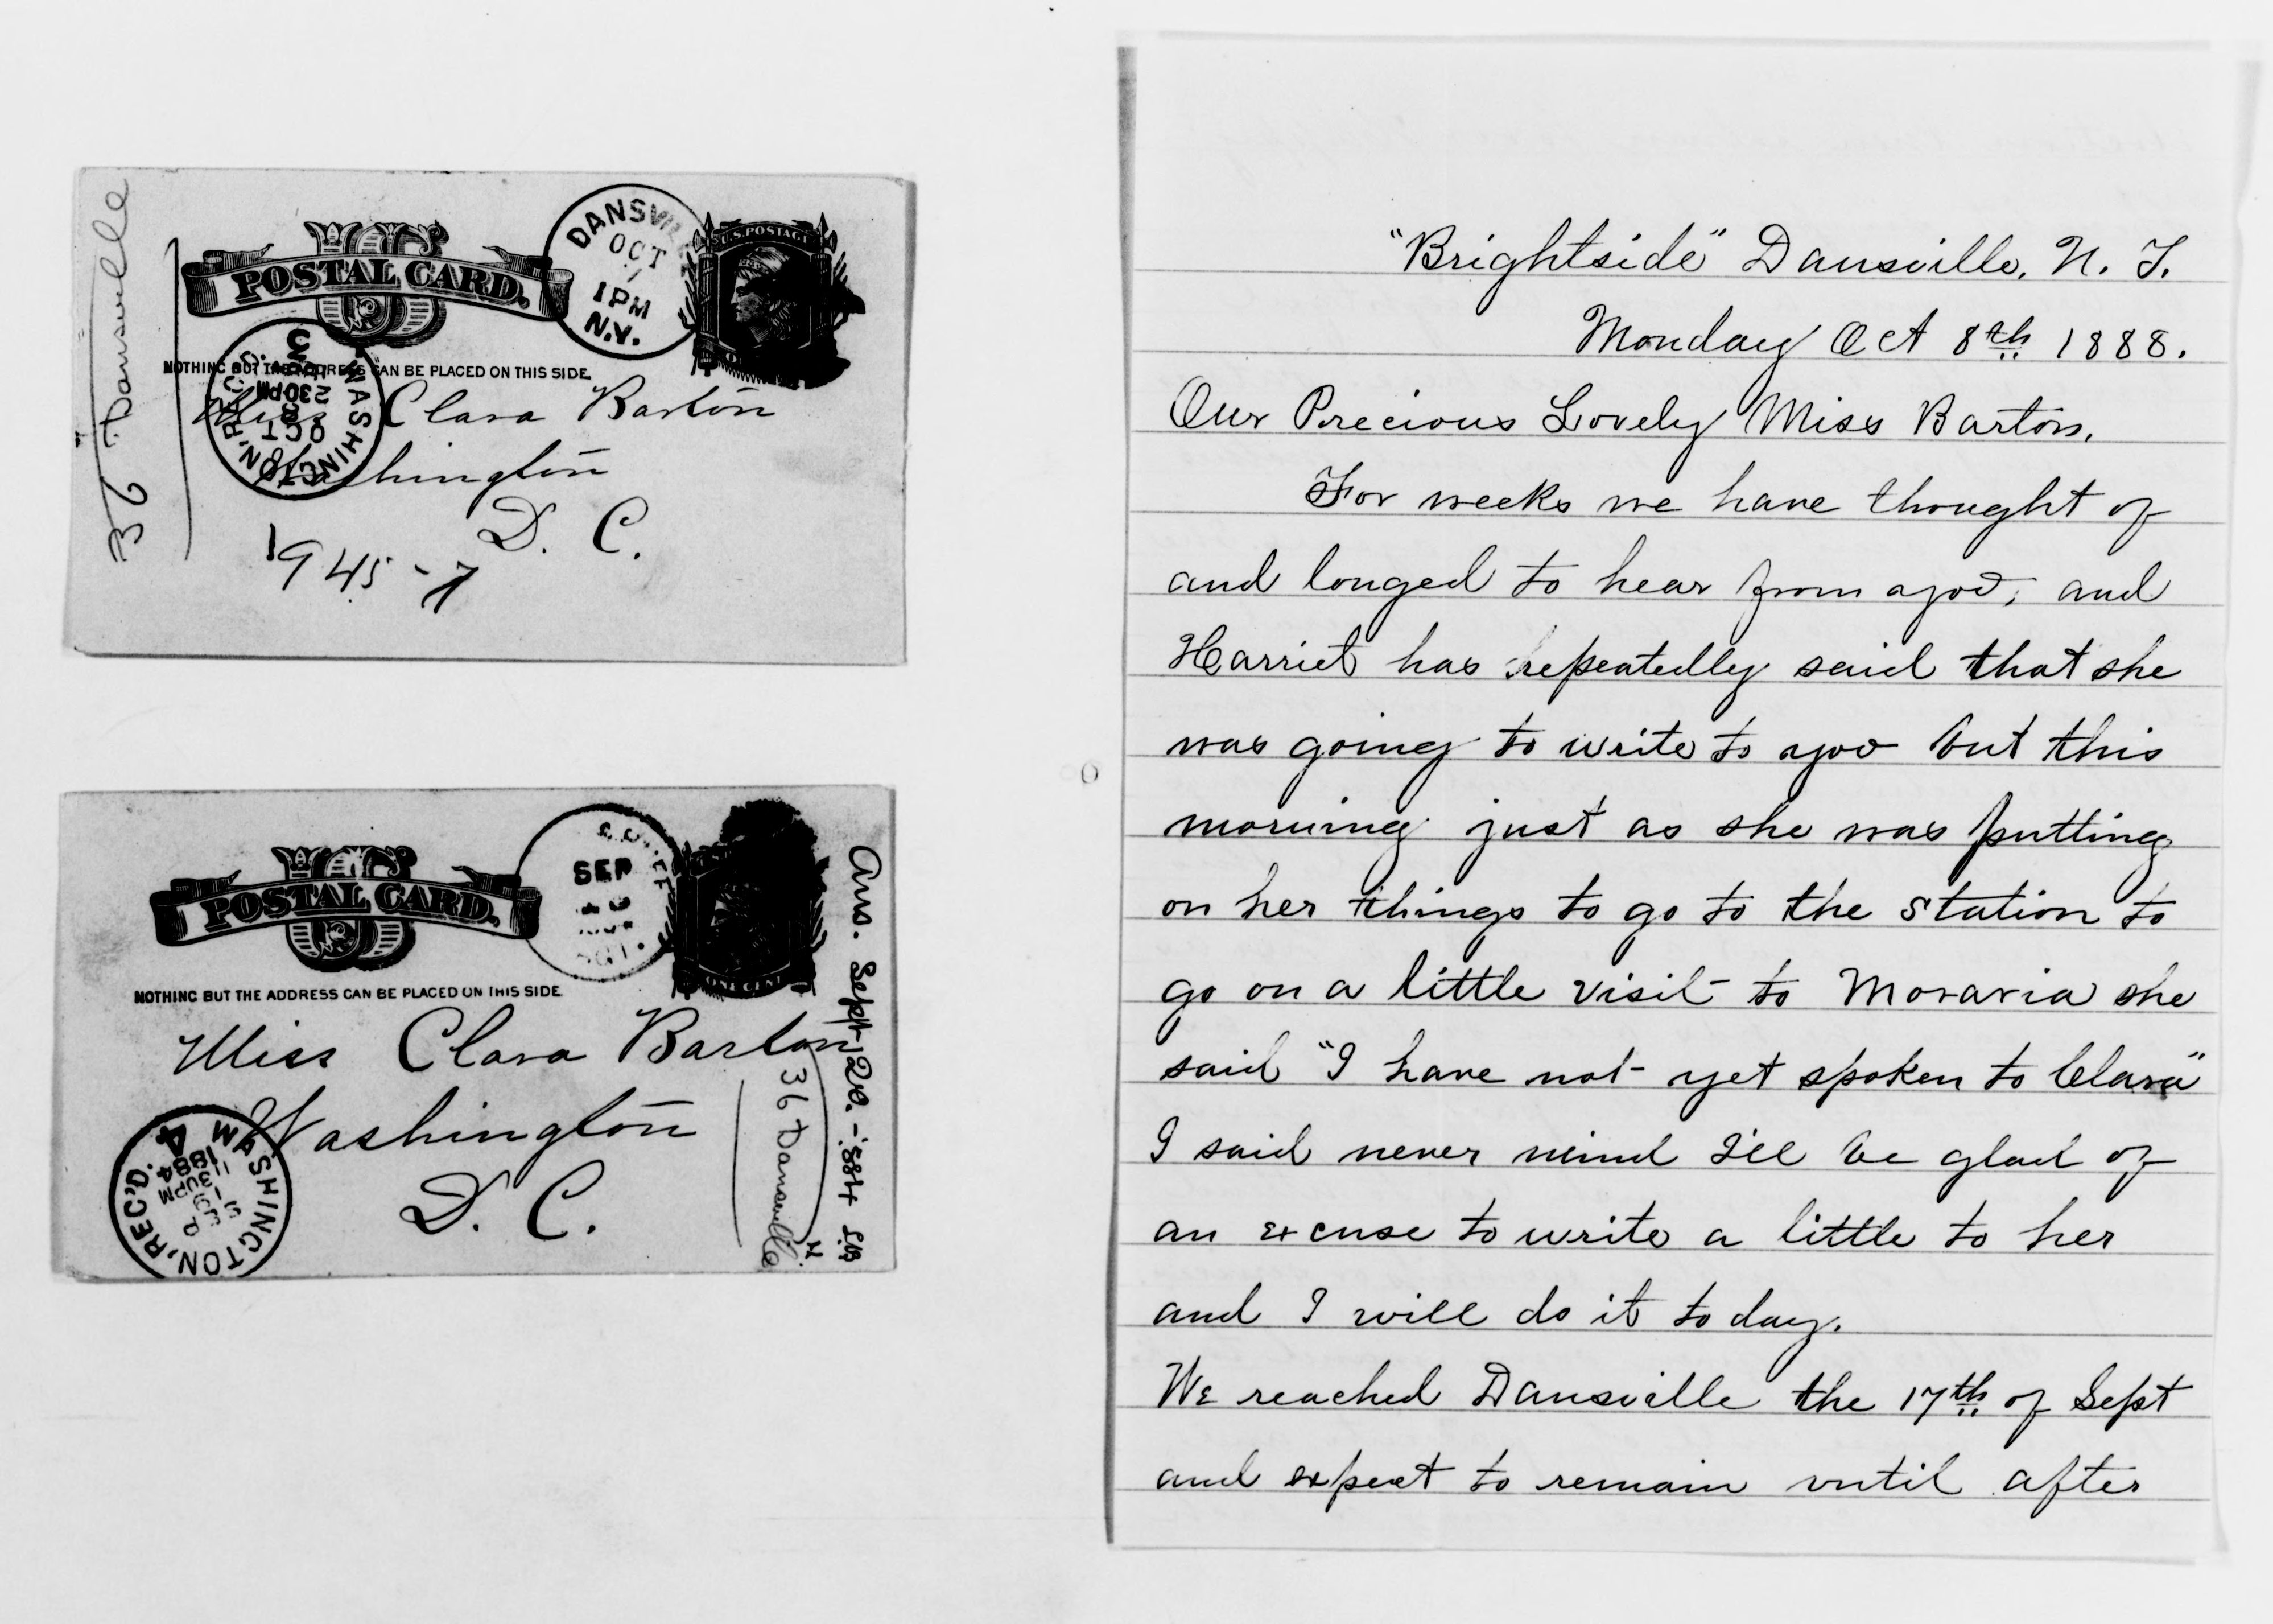 36 Dansville
POSTAL CARD.
DANSVILLE
OCT
7
1 PM
N.Y.
U.S. POSTAGE
NOTHING BUT THE ADDRESS CAN BE PLACED ON THIS SIDE.
WASHINGTON, REC'D.
OCT
8
2 30 PM
3
Miss Clara Barton
Washington
D. C.
1945-7
POSTAL CARD.
SEP
ONE CENT
NOTHING BUT THE ADDRESS CAN BE PLACED ON THIS SIDE.
Miss Clara Barton
Washington
D. C.
WASHINGTON, REC'D.
11 30 PM
1884
4
36 Dansville
Ans. Sept 20. - 1884
"Brightside" Dansville, N. Y.
Monday Oct 8th 1888.
Our Precious Lovely Miss Barton,
For weeks we have thought of
and longed to hear from you, and
Harriet has repeatedly said that she
was going to write to you but this
morning just as she was putting
on her things to go to the station to
go on a little visit to Moravia she
said "I have not yet spoken to Clara"
I said never mind I'll be glad of
an excuse to write a little to her
and I will do it to day.
We reached Dansville the 17th of Sept
and expect to remain until after